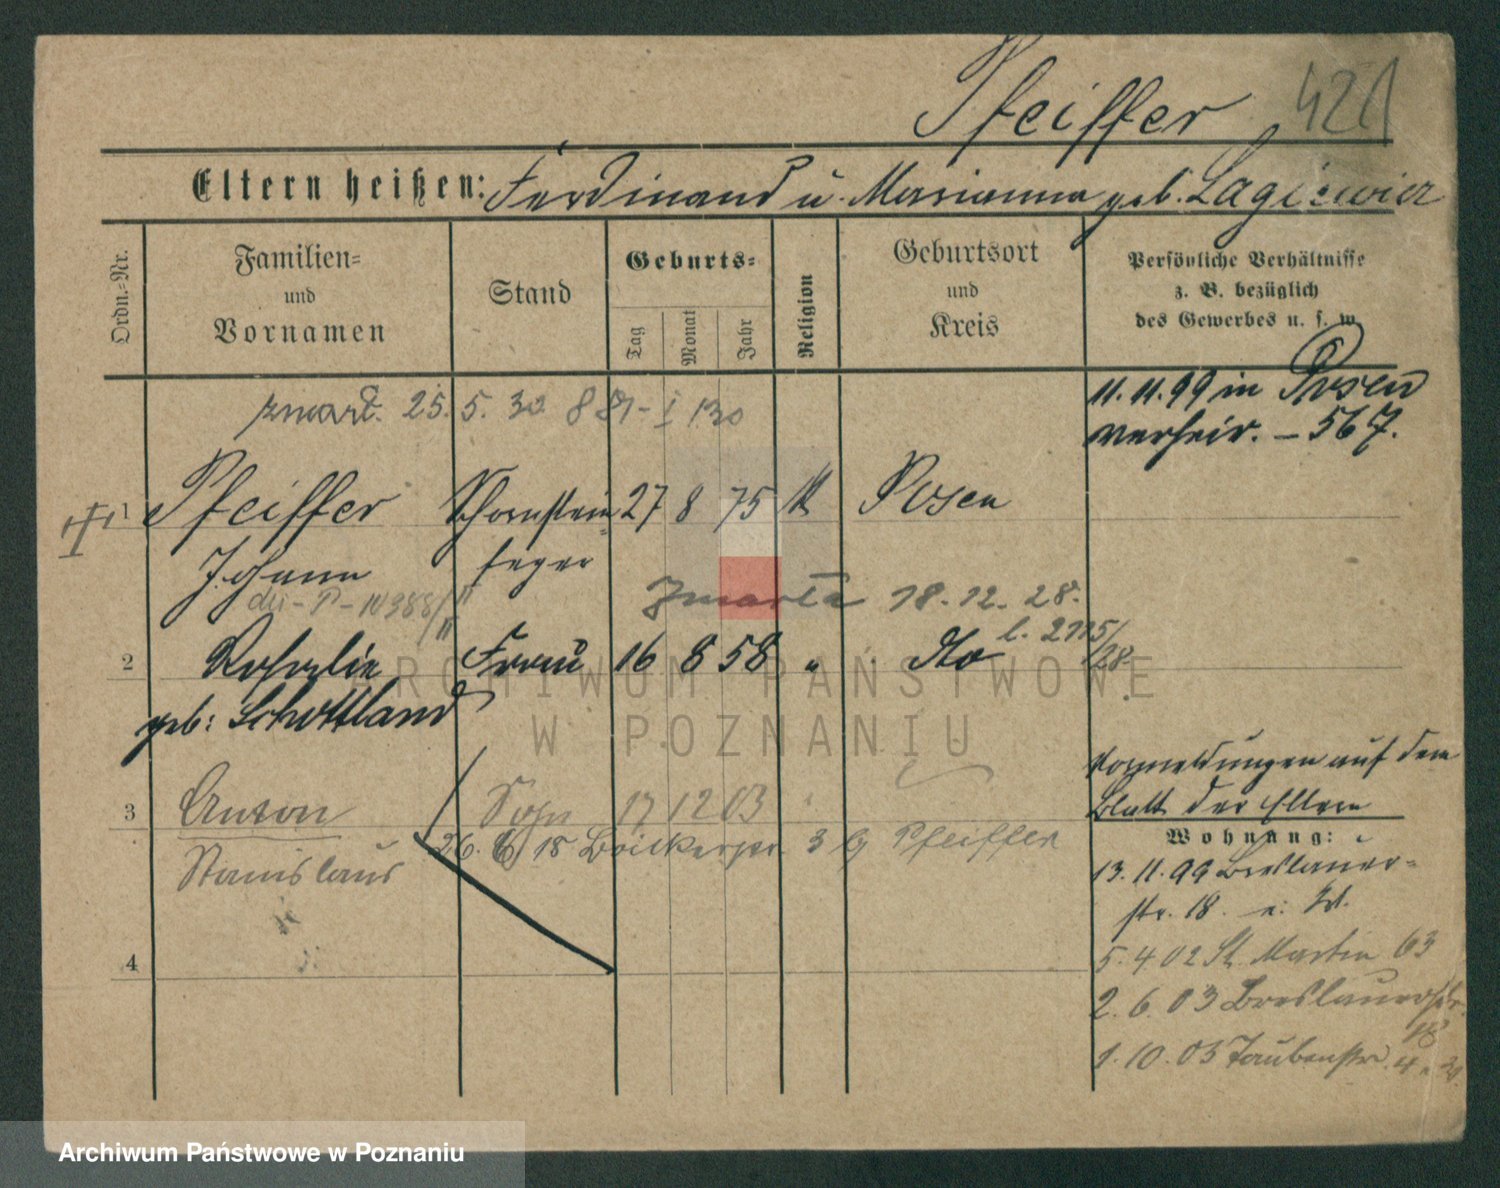 Pfeiffer 421
Eltern heißen: Ferdinand u. Marianna geb.
Ordn.-Nr.
Familien- und Vornamen
Stand
Geburts-
Tag Monat Jahr
Religion
Geburtsort und Kreis
Persönliche Verhältnisse
z. B. bezüglich
des Gewerbes u. s. w.
11.11.99 in Posen
verheir. - 567.
zmarł. 25. 5. 30
1 Pfeiffer Schornstein- 27 8 75 k Posen
Johann feger
zmarła 18. 12. 28.
2 Frau 16 8 58 " dto
geb: Schottland
Vormeldungen auf dem
Blatt der Eltern
3 Anton Sohn 17 12 03
Stanislaus
Pfeiffer
Wohnung:
13. 11. 99 Breslauer-
str. 18.
5. 4 02 St. Martin 63
2. 6. 03 Breslauerstr.
18
1. 10. 03 Taubenstr. 4
4
ARCHIWUM PAŃSTWOWE
W POZNANIU
Archiwum Państwowe w Poznaniu